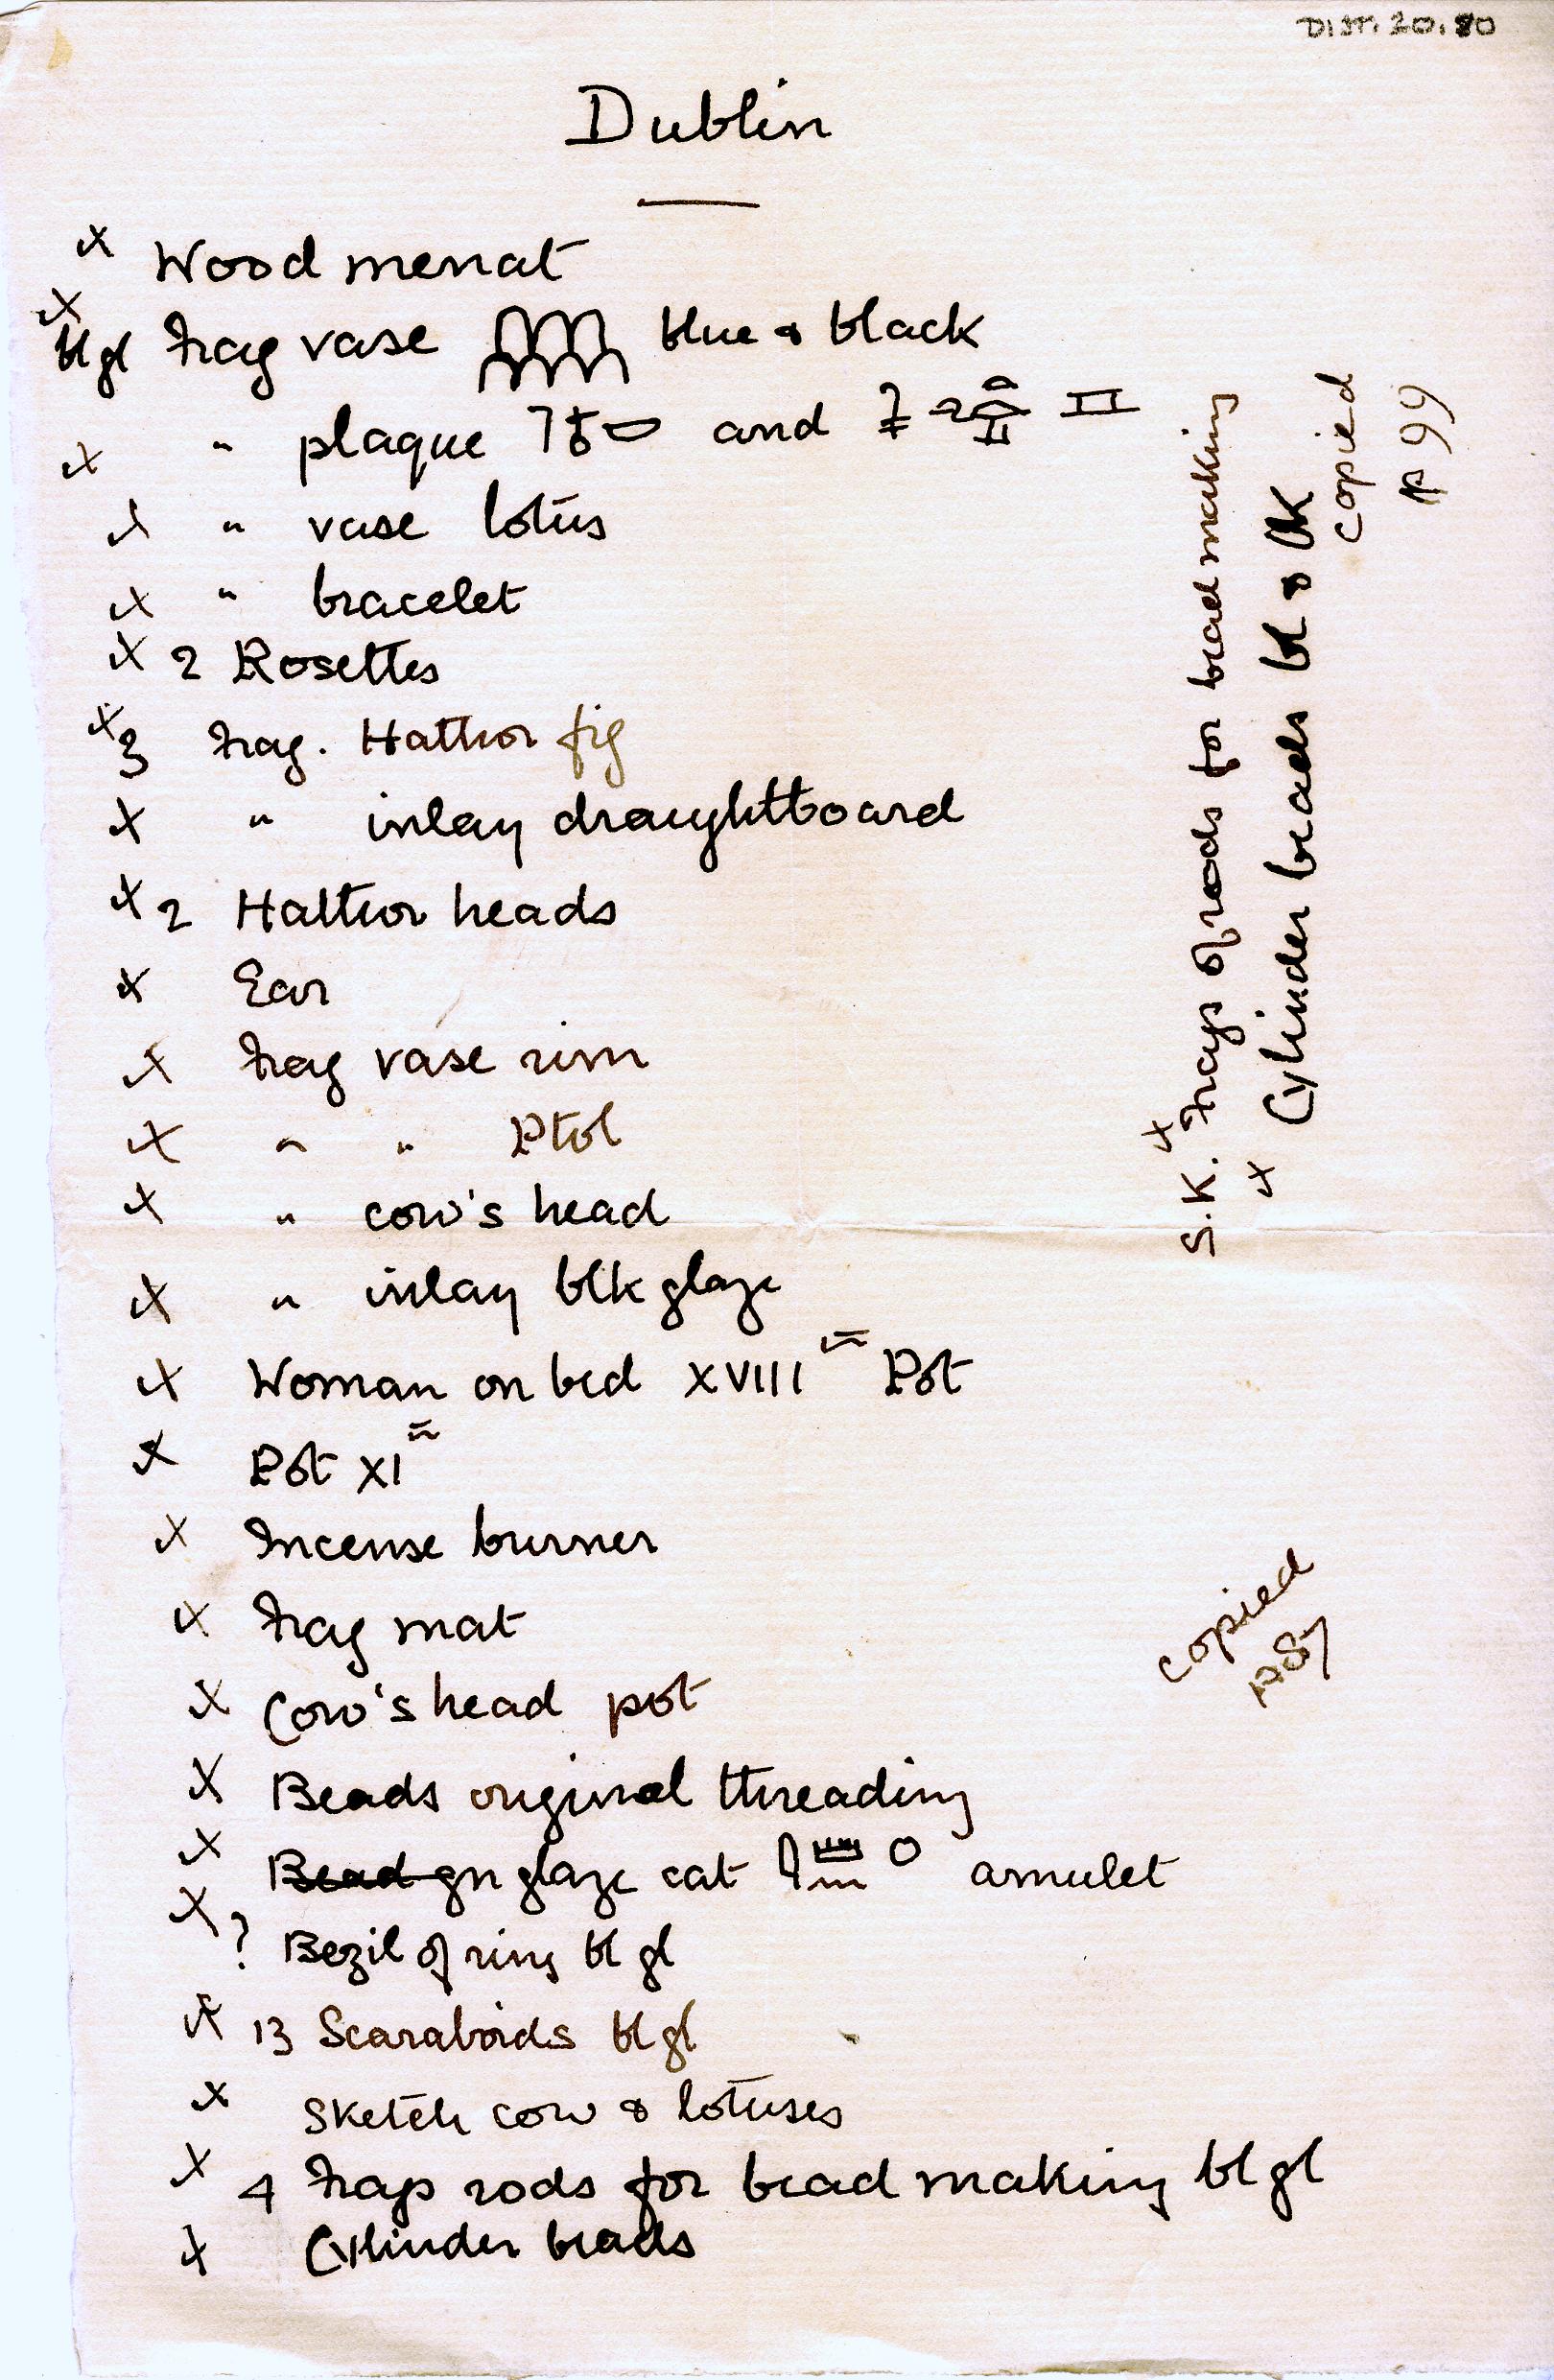 DIST. 20. 80
Dublin
x Wood menat
x
bl gl Frag vase blue & black
x " plaque and
x " vase lotus
x " bracelet
x 2 Rosettes
x 3 Frag. Hathor fig
x " inlay draughtboard
x 2 Hathor heads
x Ear
x Frag vase rim
x " " Ptol
x " cow's head
x " inlay blk glaze
x Woman on bed XVIIIth Pot
x Pot XIth
x Incense burner
x Frag mat
x Cow's head pot
x Beads original threading
x Bead gn glaze cat amulet
x ? Bezil of ring bl gl
x 13 Scaraboids bl gl
x Sketch cow & lotuses
x 4 Frags rods for bead making bl gl
x Cylinder beads
S.K. x Frags of rods for bead making
x Cylinder beads bl & blk
copied
p 99
copied
p87